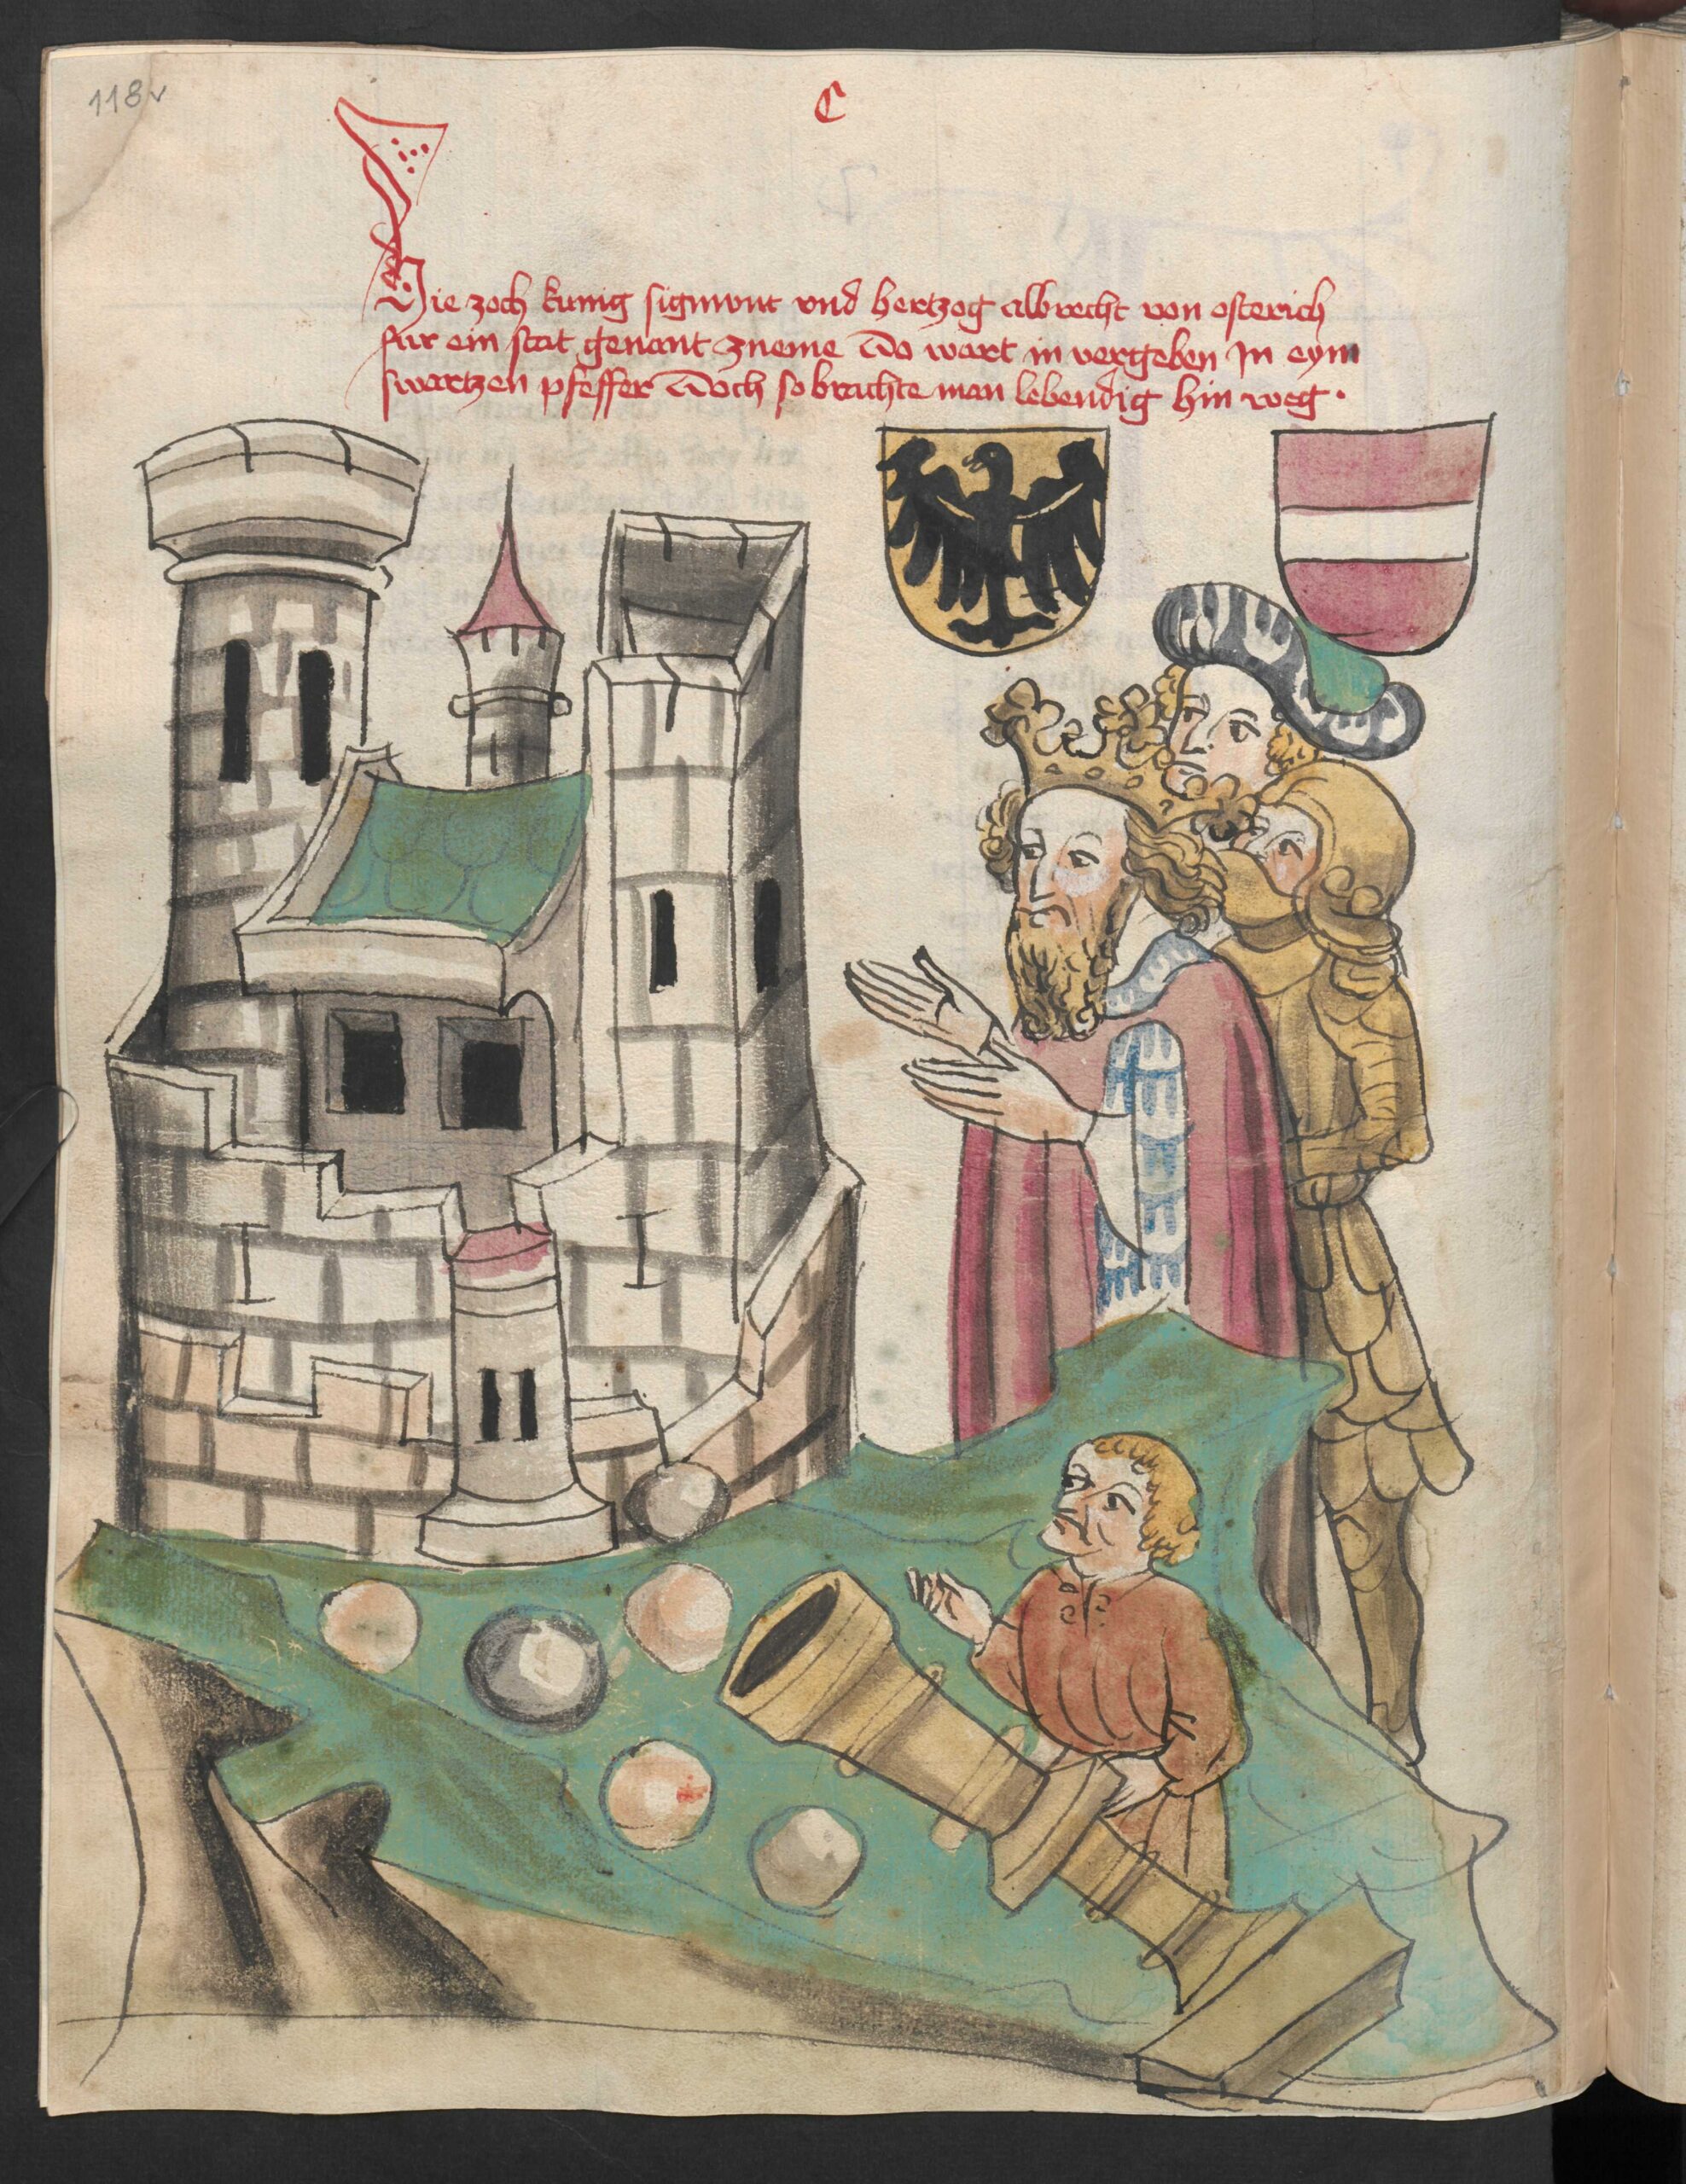 118v
C
Hie zoch kunig sigmont vnd hertzog albrecht von osterich
fur ein stat genant zneme Do wart in vergeben In eym
swartzen pfeffer Doch so brachte man lebendig hin weg ·